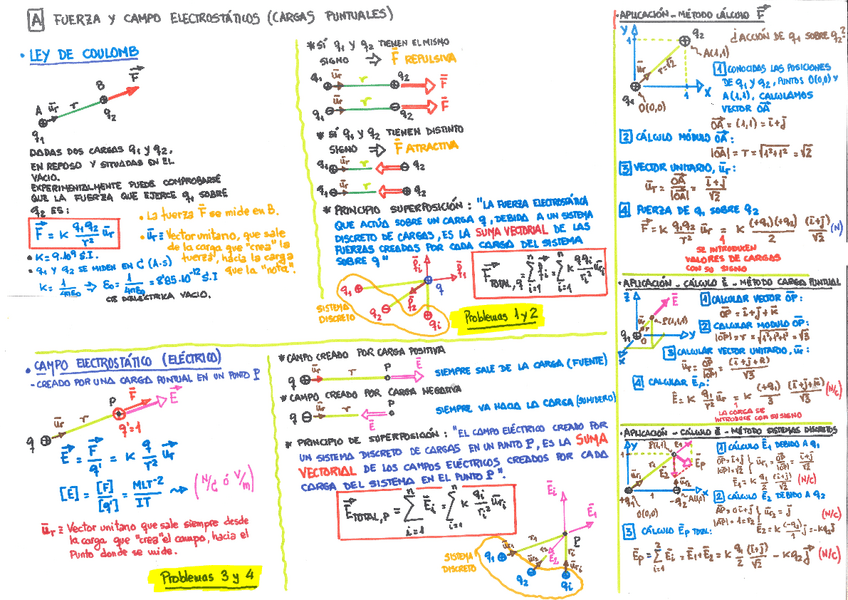 A FUERZA Y CAMPO ELECTROSTÁTICOS (CARGAS PUNTUALES)
• LEY DE COULOMB
A
B
q1
q2
ūr
r
F
DADAS DOS CARGAS q1 Y q2,
EN REPOSO Y SITUADAS EN EL
VACIO.
EXPERIMENTALMENTE PUEDE COMPROBARSE
QUE LA FUERZA QUE EJERCE q1 SOBRE
q2 ES:
F = K q1 q2 / r² ūr
• K = 9·10⁹ S.I.
• q1 Y q2 SE MIDEN EN C (A·s)
• La fuerza F se mide en B.
• ūr ≡ Vector unitario, que sale
de la carga que "crea" la
fuerza, hacia la carga
que la "nota".
* SÍ q1 Y q2 TIENEN EL MISMO
SIGNO ⇒ F REPULSIVA
* SÍ q1 Y q2 TIENEN DISTINTO
SIGNO ⇒ F ATRACTIVA
* PRINCIPIO SUPERPOSICIÓN: "LA FUERZA ELECTROSTÁTICA
QUE ACTÚA SOBRE UN CARGA q, DEBIDA A UN SISTEMA
DISCRETO DE CARGAS, ES LA SUMA VECTORIAL DE LAS
FUERZAS CREADAS POR CADA CARGA DEL SISTEMA
SOBRE q"
SISTEMA
DISCRETO
Problemas 1 y 2
• CAMPO ELECTROSTÁTICO (ELÉCTRICO)
- CREADO POR UNA CARGA PUNTUAL EN UN PUNTO P
q'=1
E = F / q' = K q / r² ūr
[E] = [F] / [q'] = MLT⁻² / IT ⇒ (N/C ó V/m)
ūr ≡ Vector unitario que sale siempre desde
la carga que "crea" el campo, hacia el
Punto donde se mide.
Problemas 3 y 4
* CAMPO CREADO POR CARGA POSITIVA
SIEMPRE SALE DE LA CARGA (FUENTE)
* CAMPO CREADO POR CARGA NEGATIVA
SIEMPRE VA HACIA LA CARGA (SUMIDERO)
* PRINCIPIO DE SUPERPOSICIÓN: "EL CAMPO ELÉCTRICO CREADO POR
UN SISTEMA DISCRETO DE CARGAS EN UN PUNTO P, ES LA SUMA
VECTORIAL DE LOS CAMPOS ELÉCTRICOS CREADOS POR CADA
CARGA DEL SISTEMA EN EL PUNTO P".
SISTEMA
DISCRETO
• APLICACIÓN - MÉTODO CÁLCULO F
¿ACCIÓN DE q1 SOBRE q2?
A(1,1)
O(0,0)
1 CONOCIDAS LAS POSICIONES
DE q1 Y q2, PUNTOS O(0,0) Y
A(1,1), CALCULAMOS
VECTOR OA
OA = (1,1) = i+j
2 CÁLCULO MÓDULO OA:
|OA| = r = √1²+1² = √2
3 VECTOR UNITARIO, ūr:
ūr = OA / |OA| = i+j / √2
4 FUERZA DE q1 SOBRE q2
F = K q1 q2 / r² ūr = K (+q1)(+q2) / 2 (i+j) / √2 (N)
SE INTRODUCEN
VALORES DE CARGAS
CON SU SIGNO
• APLICACIÓN - CÁLCULO E - MÉTODO CARGA PUNTUAL
1 CALCULAR VECTOR OP:
OP = i+j+k
2 CALCULAR MODULO OP:
|OP| = r = √1²+1²+1² = √3
3 CALCULAR VECTOR UNITARIO, ūr:
ūr = OP / |OP| = (i+j+k) / √3
4 CALCULAR Ep:
E = K q1 / r² ūr = K (+q1) / 3 (i+j+k) / √3 (N/C)
LA CARGA SE
INTRODUCE CON SU SIGNO
• APLICACIÓN - CÁLCULO E - MÉTODO SISTEMAS DISCRETOS
1 CÁLCULO E1 DEBIDO A q1
2 CÁLCULO E2 DEBIDO A q2
3 CÁLCULO Ep TOTAL: